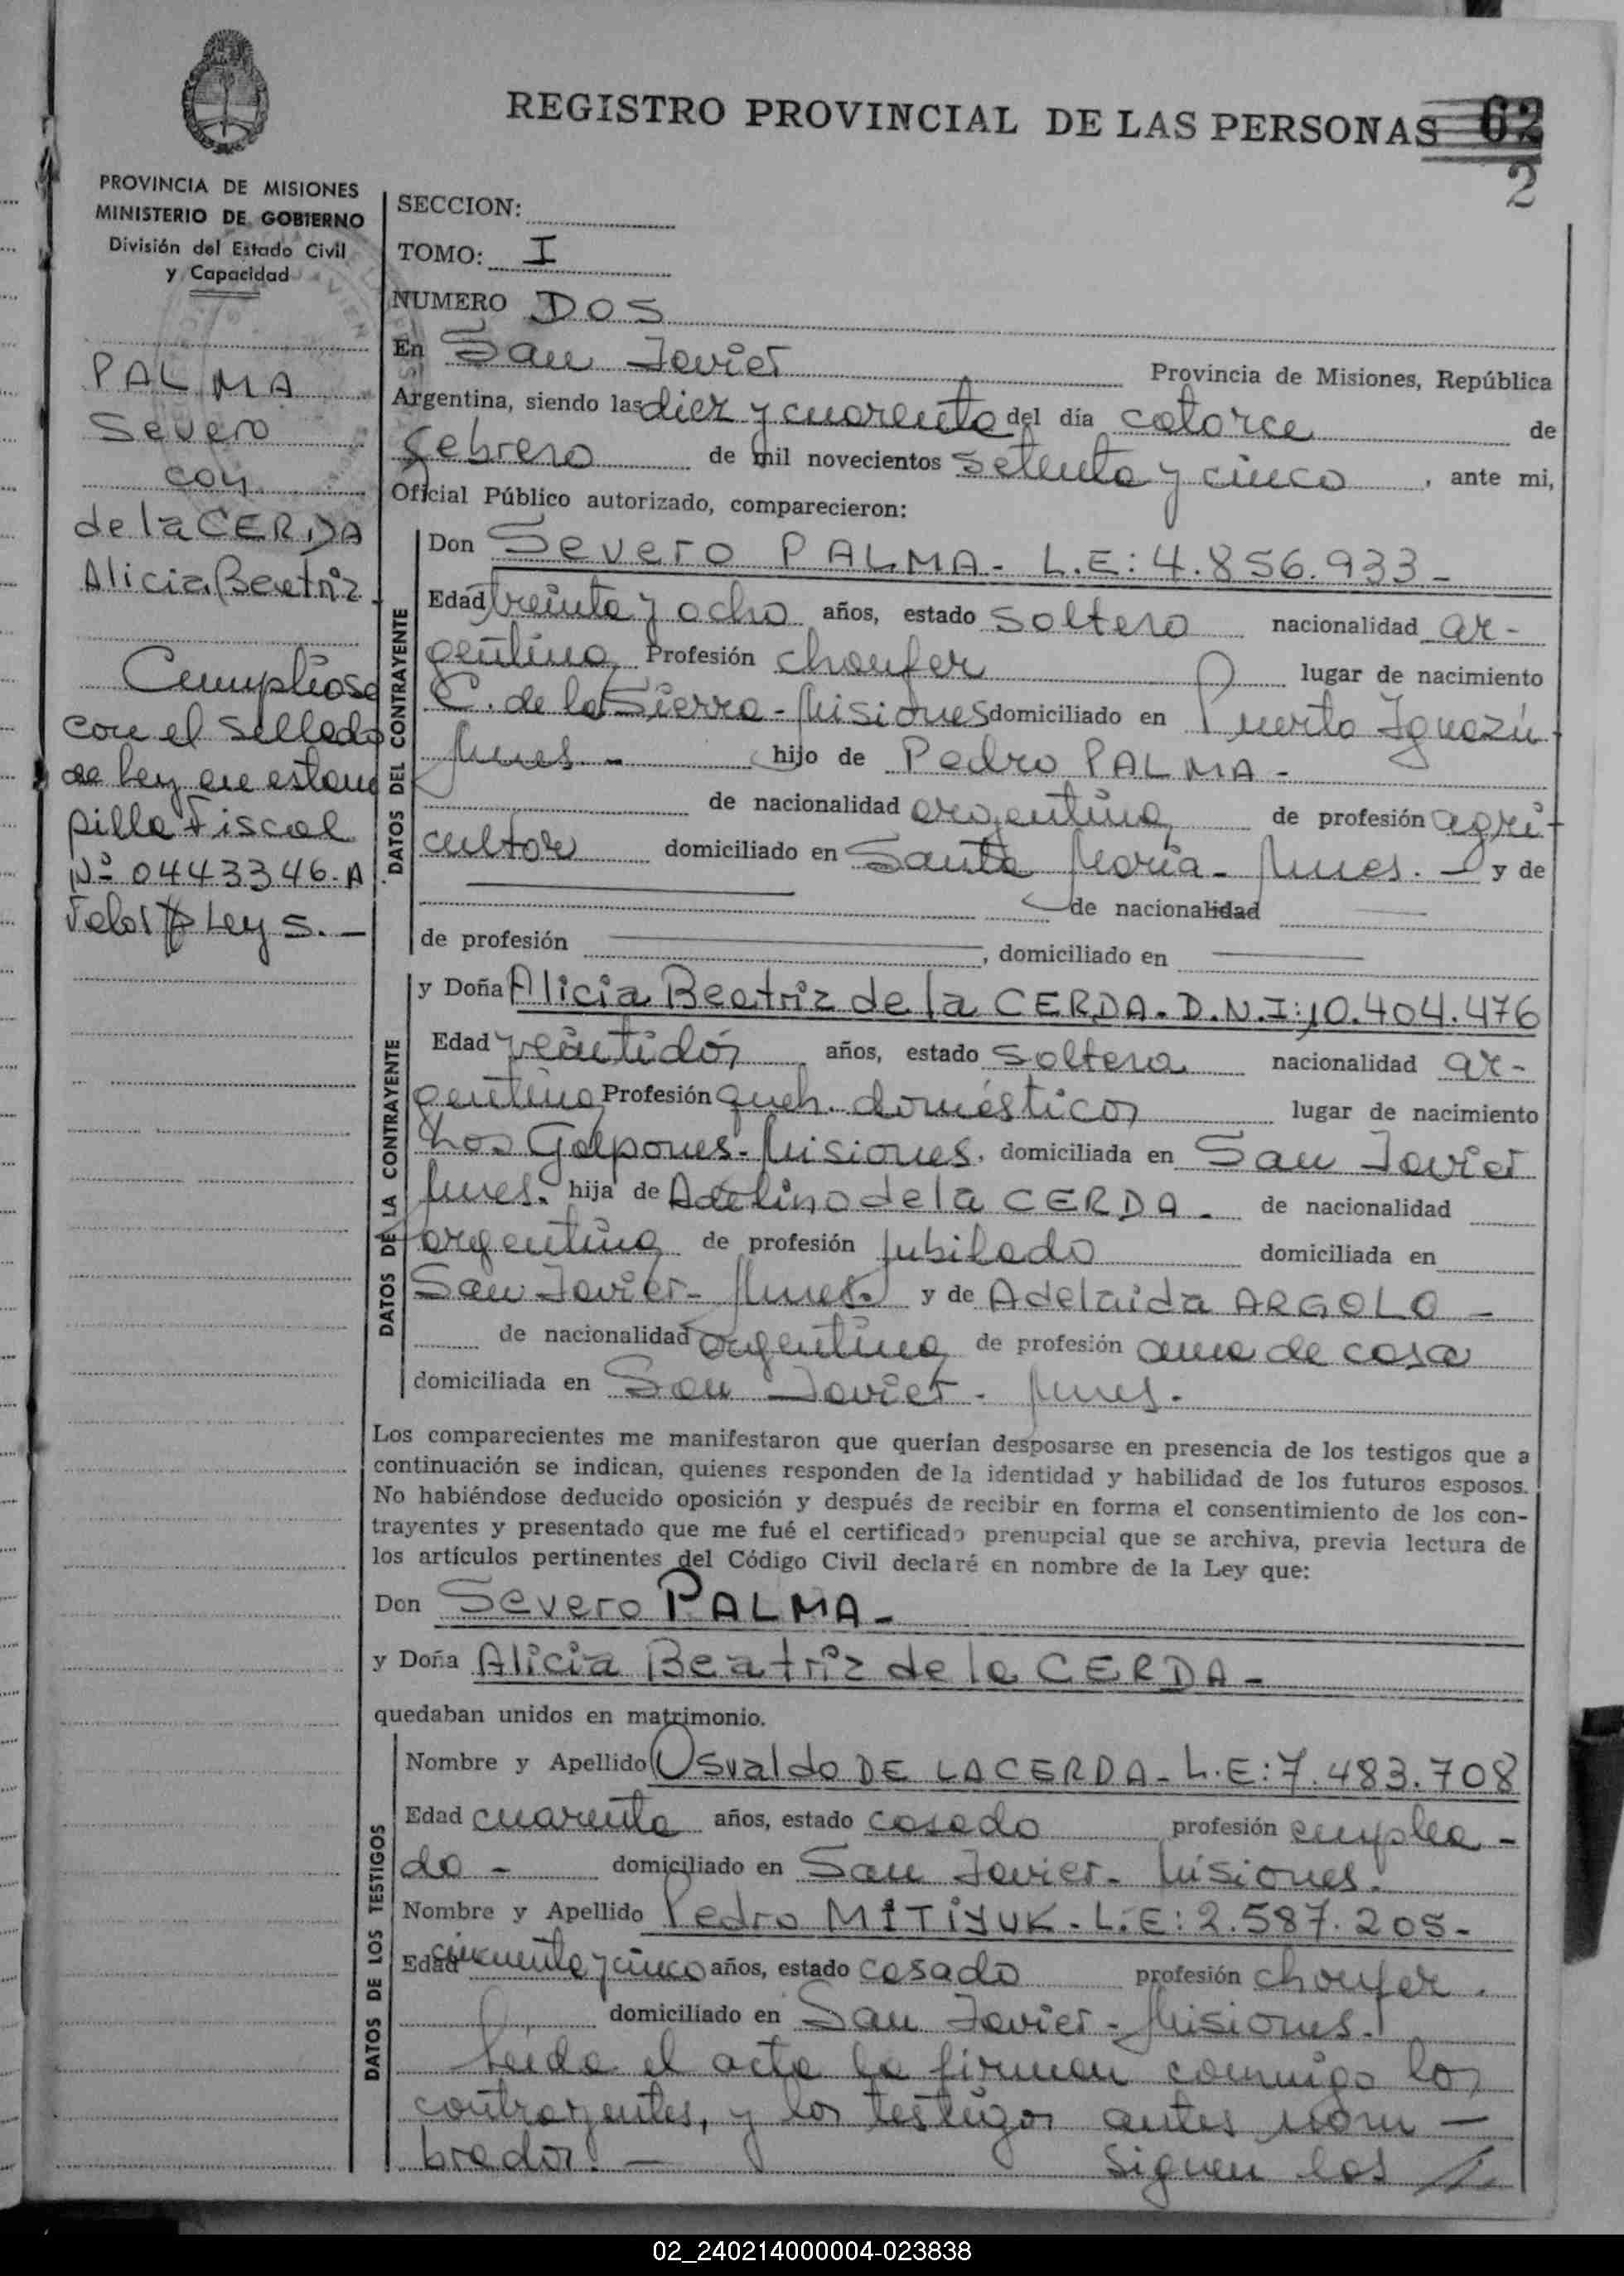 REGISTRO PROVINCIAL DE LAS PERSONAS 62
2
PROVINCIA DE MISIONES
MINISTERIO DE GOBIERNO
División del Estado Civil
y Capacidad
PALMA
Severo
con
de la CERDA
Alicia Beatriz
Cumpliose
con el sellado
de ley en estam
pilla Fiscal
Nº 0443346-A
Valor $ Ley 5.-
SECCION:
TOMO: I
NUMERO DOS
En San Javier Provincia de Misiones, República
Argentina, siendo las diez y cuarenta del día catorce de
febrero de mil novecientos setenta y cinco, ante mi,
Oficial Público autorizado, comparecieron:
DATOS DEL CONTRAYENTE
Don Severo PALMA- L.E: 4.856.933-
Edad treinta y ocho años, estado soltero nacionalidad ar-
gentina Profesión choufer lugar de nacimiento
C. de la Sierra-Misiones domiciliado en Puerto Iguazú-
Mnes.- hijo de Pedro PALMA-
de nacionalidad argentina de profesión agri-
cultor domiciliado en Santa María-Mnes.- y de
de nacionalidad
de profesión , domiciliado en
DATOS DE LA CONTRAYENTE
y Doña Alicia Beatriz de la CERDA. D.N.I: 10.404.476
Edad veintidós años, estado soltera nacionalidad ar-
gentina Profesión queh. domésticos lugar de nacimiento
Los Galpones-Misiones. domiciliada en San Javier
Mnes. hija de Adelino de la CERDA- de nacionalidad
argentina de profesión jubilado domiciliada en
San Javier- Mnes. y de Adelaida ARGOLO-
de nacionalidad argentina de profesión ama de casa
domiciliada en San Javier- Mnes.
Los comparecientes me manifestaron que querían desposarse en presencia de los testigos que a
continuación se indican, quienes responden de la identidad y habilidad de los futuros esposos.
No habiéndose deducido oposición y después de recibir en forma el consentimiento de los con-
trayentes y presentado que me fué el certificado prenupcial que se archiva, previa lectura de
los artículos pertinentes del Código Civil declaré en nombre de la Ley que:
Don Severo PALMA-
y Doña Alicia Beatriz de la CERDA-
quedaban unidos en matrimonio.
DATOS DE LOS TESTIGOS
Nombre y Apellido Osvaldo DE LACERDA- L.E: 7.483.708
Edad cuarenta años, estado casado profesión emplea-
do- domiciliado en San Javier- Misiones.
Nombre y Apellido Pedro MITIYUK- L.E: 2.587.205-
Edad cincuenta y cinco años, estado casado profesión choufer.
domiciliado en San Javier- Misiones.
Leida el acta la firman conmigo los
contrayentes, y los testigos antes nom-
brados.-
Siguen las //
02_240214000004-023838